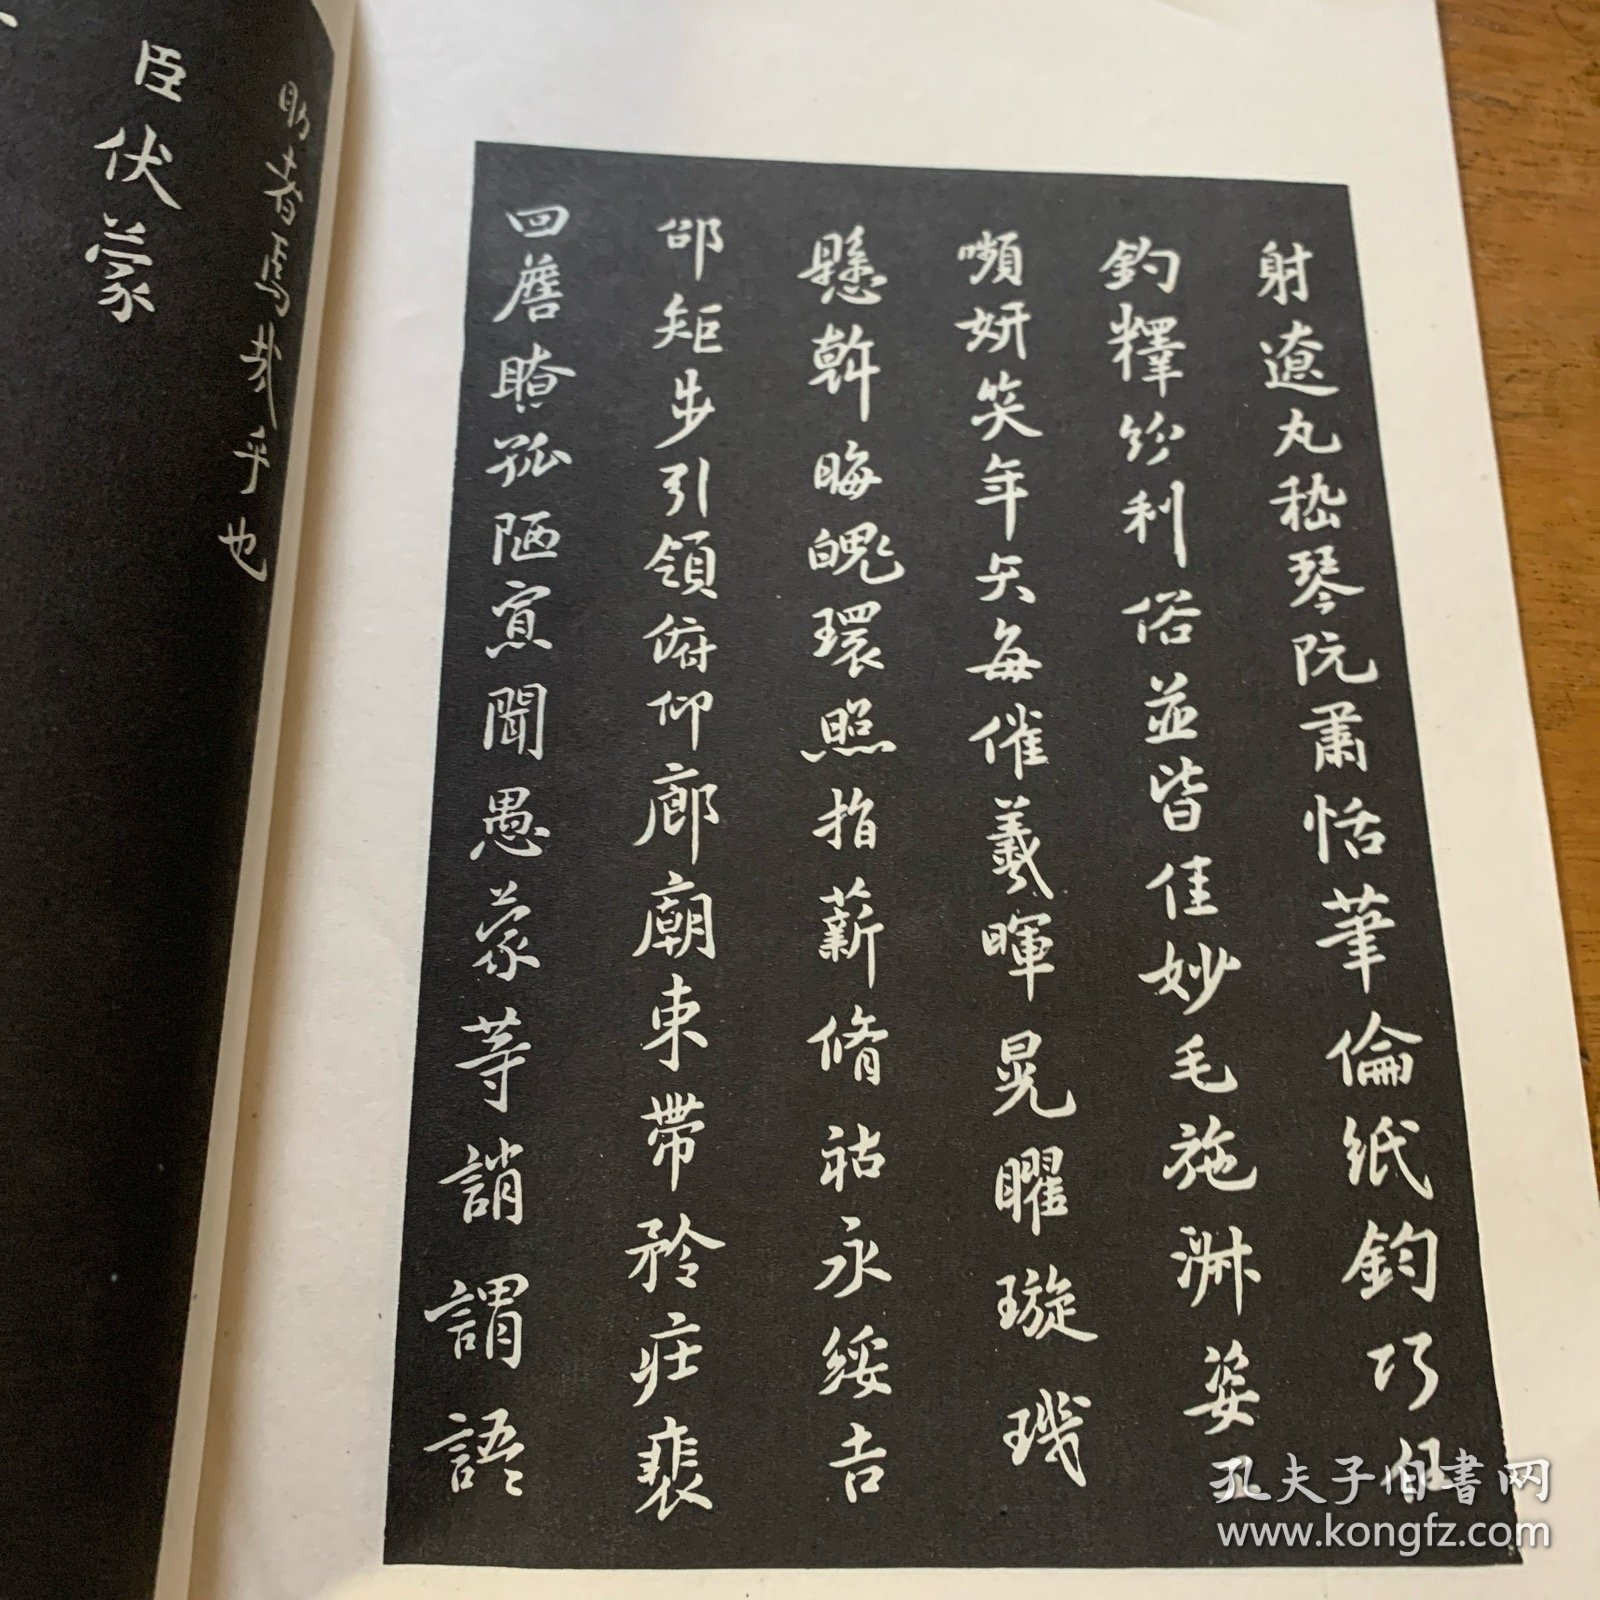 射遼丸嵇琴阮肅恬筆倫紙鈞巧任
釣釋紛利俗並皆佳妙毛施淑姿工
嚬妍笑年矢每催羲暉晃曜璇璣
懸斡晦魄環照指薪脩祜永綏吉
邵矩步引領俯仰廊廟束帶矜莊裴
回詹瞭孤陋寡聞愚蒙等誚謂語
助者焉哉乎也
臣伏蒙
孔夫子旧书网
www.kongfz.com